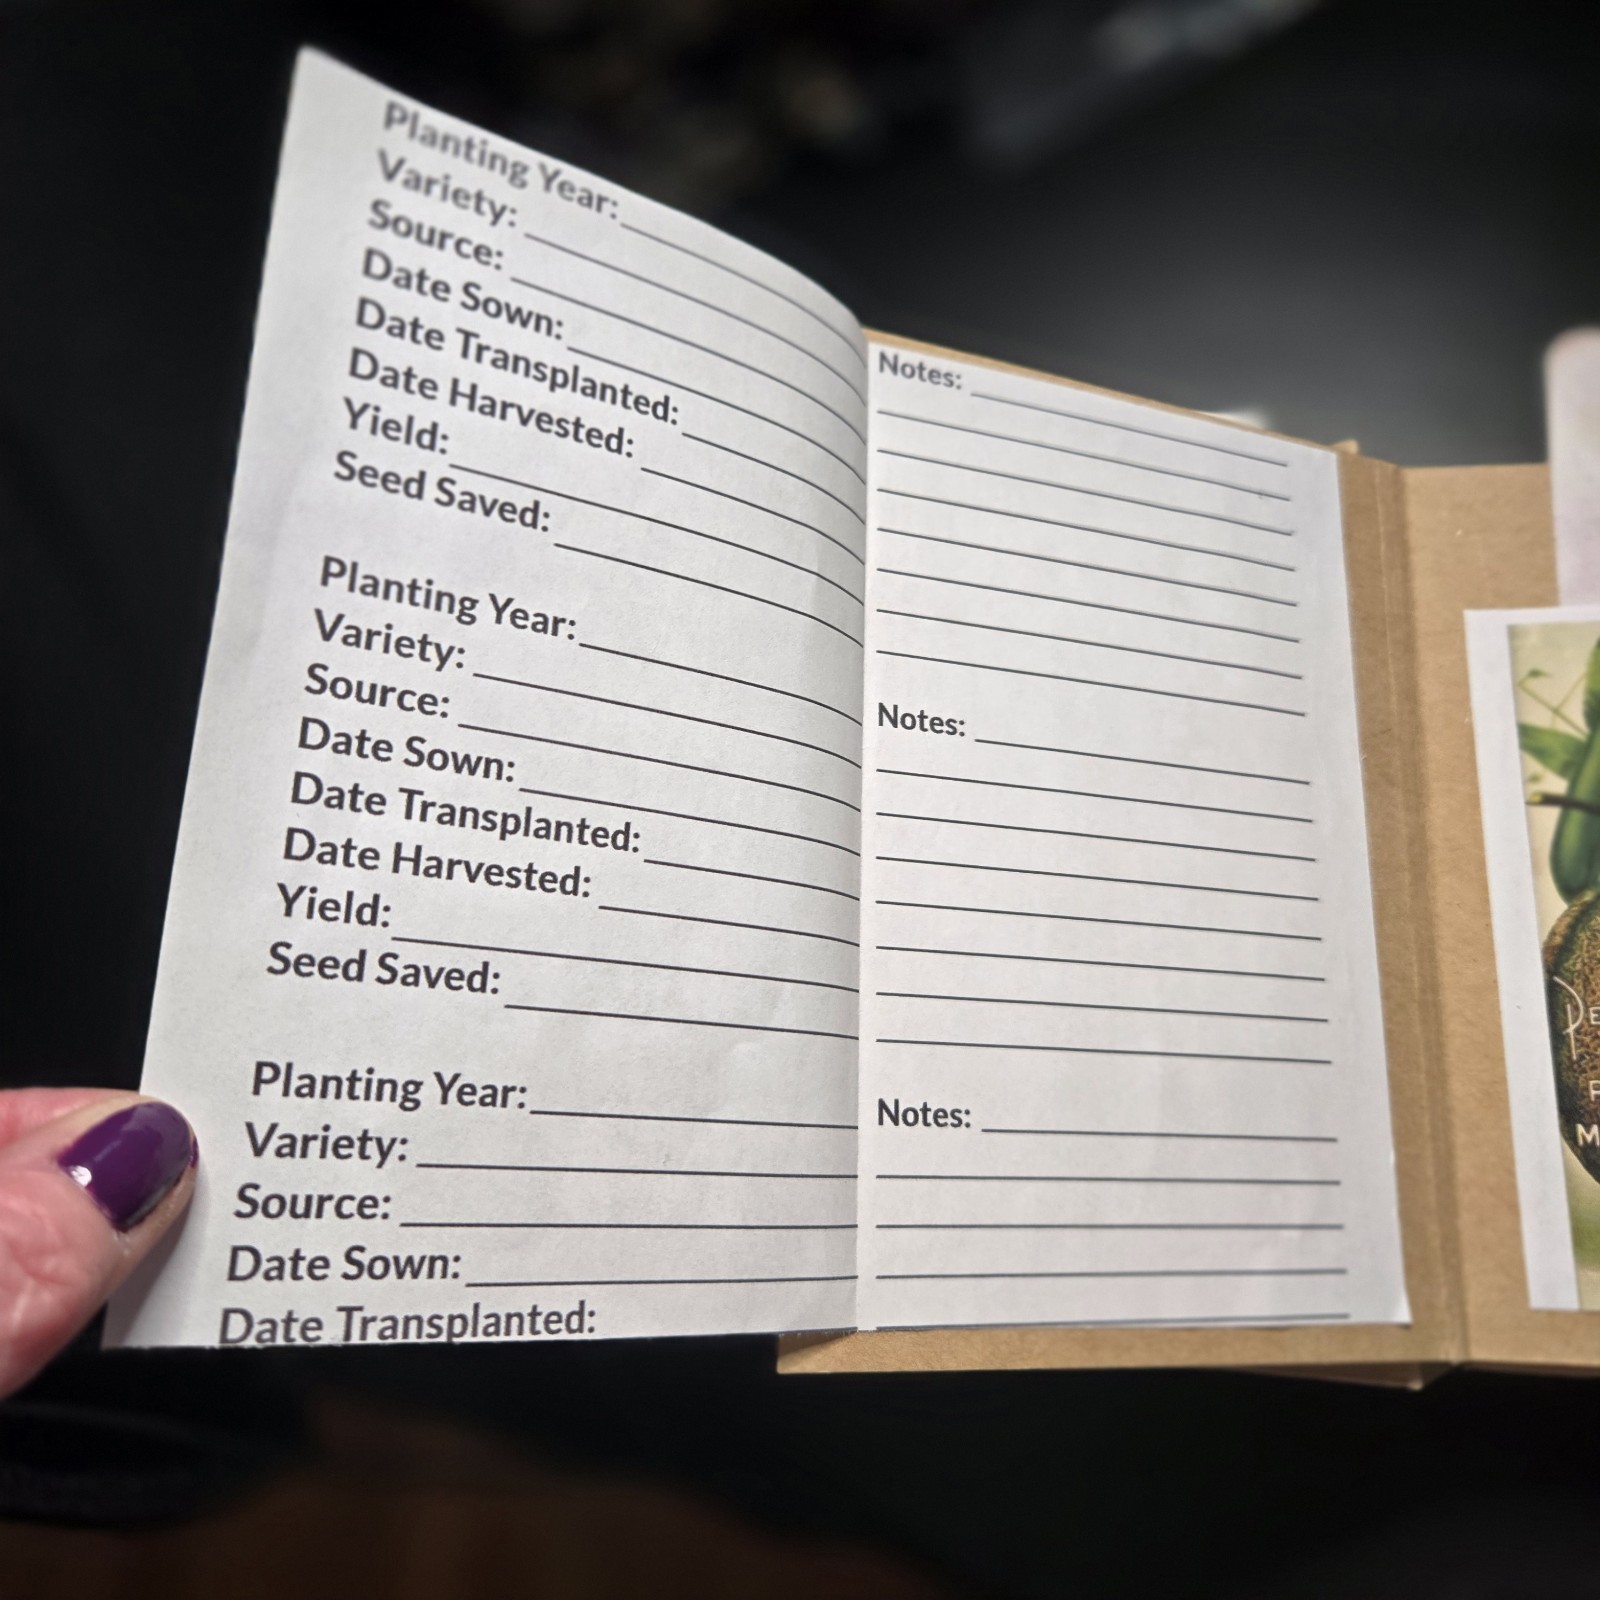 Planting Year:
Variety:
Source:
Date Sown:
Date Transplanted:
Date Harvested:
Yield:
Seed Saved:
Planting Year:
Variety:
Source:
Date Sown:
Date Transplanted:
Date Harvested:
Yield:
Seed Saved:
Planting Year:
Variety:
Source:
Date Sown:
Date Transplanted:
Notes:
Notes:
Notes: